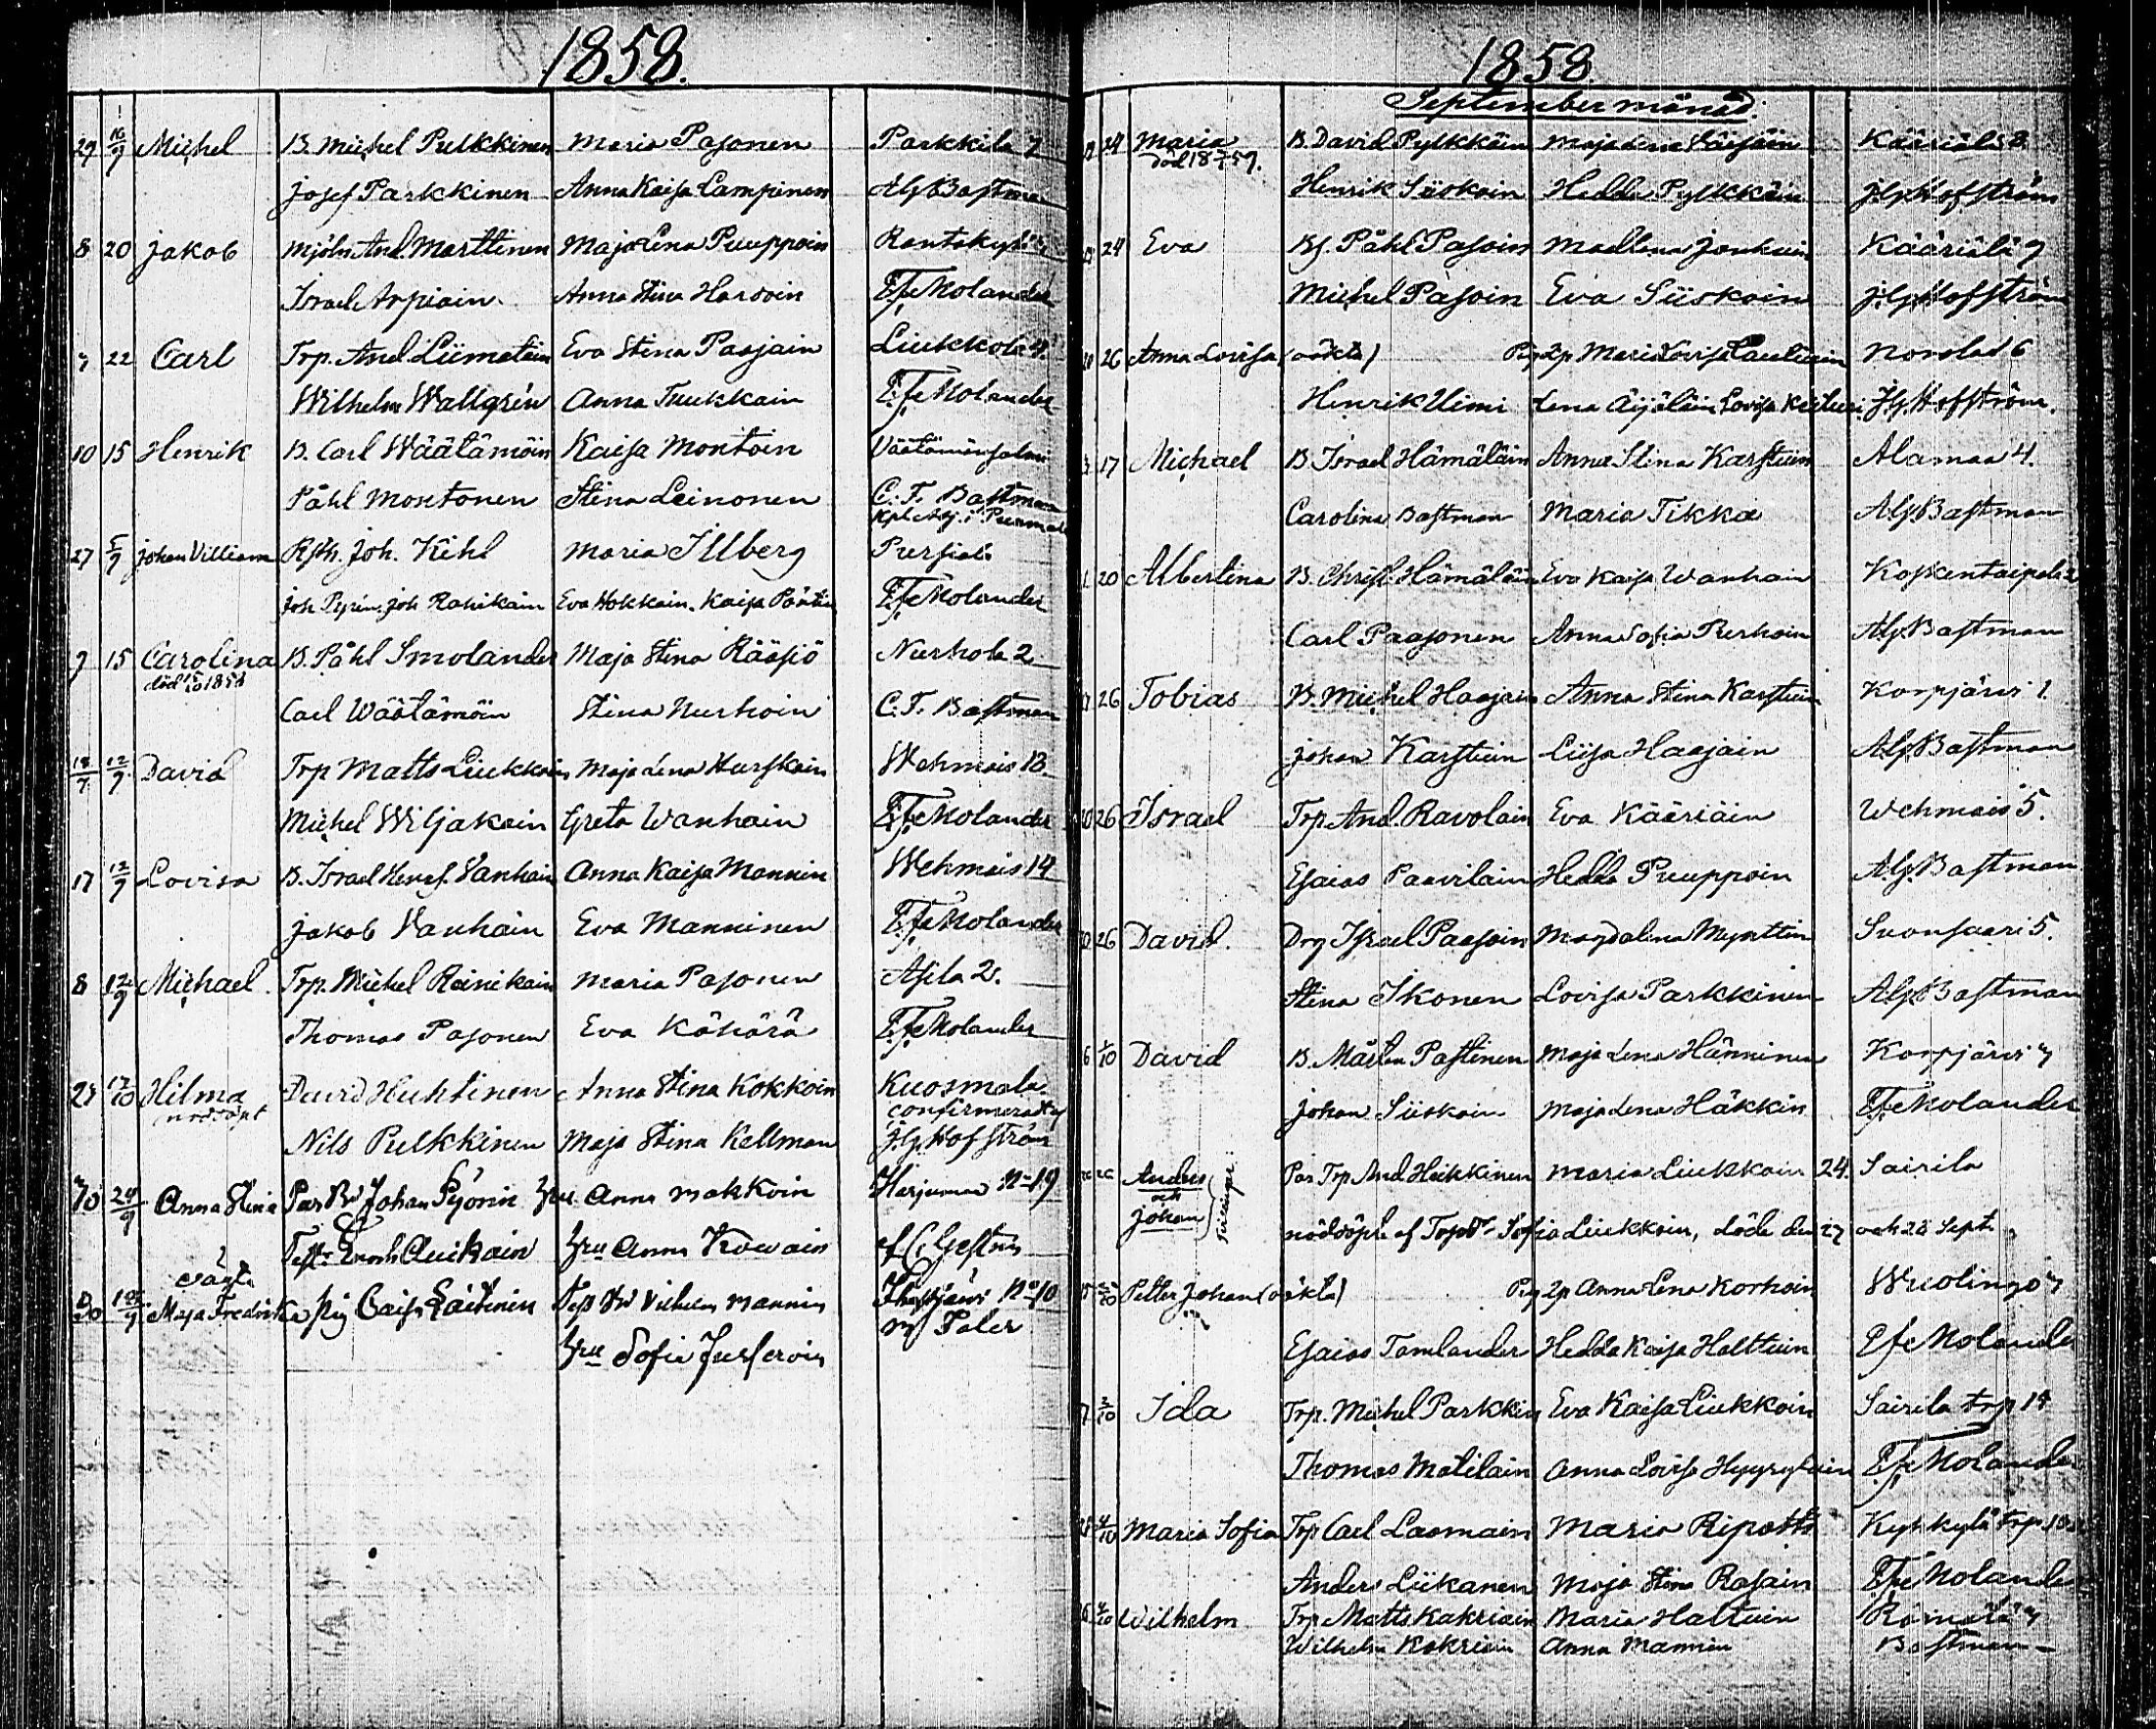 1858.
29 16/9 Michel B. Michel Pulkkinen Maria Pasonen Parkkila 7
Josef Parkkinen Anna Kaisa Lampinen Alf Bastman
8 20 Jakob Mjöln. And. Marttinen Maja Lena Puuppoin Rantakylä
Israel Arpiain Anna Stina Harvoin Efr Molander
7 22 Carl Trp. And. Liimatain Eva Stina Paajain Liukkola 4.
Wilhelm Wallgrén Anna Tuukkain Efr Molander
10 15 Henrik B. Carl Wäätämöin Kaisa Montoin Väätämönsalmi
Påhl Montonen Stina Leinonen C. F. Bastman
Kpl. adj. i Puumala
27 5/9 Johan Villiam Rsth. Joh. Kihl Maria Illberg Pursiala
Joh Pyrin. Joh Rahikain Eva Hokkain. Kaisa Pöntin Efr Molander
7 15 Carolina B. Påhl Smolander Maja Stina Rääsiö Nurhola 2
död 15/10 1858
Carl Wäätämöin Stina Nurhoin C. F. Bastman
18/7 12/9 David Trp Matts Liukkoin Maja Lena Hurskain Wehmais 13.
Michel Wiljakain Greta Wanhain Efr Molander
17 12/9 Lovisa B. Israel Henrs. Vanhain Anna Kaisa Mannin Wehmais 14
Jakob Vanhain Eva Manninen Efr Molander
8 12/9 Michael. Trp. Michel Reinikain Maria Pasonen Asila 2.
Thomas Pasonen Eva Kähärä Efr Molander
27 17/10 Hilma David Huhtinen Anna Stina Kokkoin Kuosmala
nöddöpt confirmerad af
Nils Pulkkinen Maja Stina Kellman J. G. Hofström
24/9 Anna Stina Par Bd Johan Pyörin hru Anna Makkoin Harjumaa N 19
Test. Enoch Auikain hru Anna Kowain
oägta
Maja Fredrika pig Caisa Laitinin Test. Dr Vilhelm Mannin N 10
hru Sofia M Paler
1858.
September månad.
24 Maria B. David Pylkkäin Maja Lena Väisäin Kääriälä 8
död 18 59.
Henrik Siiskoin Hedda Pylkkäin J. G. Hofström
24 Eva Bs. Påhl Pasoin Madlena Jonkuin Kääriälä 7
Michel Pasoin Eva Siiskoin J. G. Hofström
26 Anna Lovisa (oäkta) Pig 2p Maria Lovisa Lautiain Norola 6
Henrik Uimi Lena Äijäläin Lovisa Keituri J. G. Hofström.
17 Michael B Israel Hämäläin Anna Stina Karstuin Alamaa 4.
Carolina Bastman Maria Tikka Alf Bastman
20 Albertina B. Christ. Hämäläin Eva Kaisa Wanhain Koskentaipale 2
Carl Paasonen Anna Sofia Purhoin Alf. Bastman
26 Tobias B. Michel Haajain Anna Stina Karstuin Korpjärvi 1.
Johan Karstuin Liisa Haajain Alf. Bastman
26 Israel Trp And. Ravolain Eva Kääriäin Wehmais 5.
Esaias Paavilain Hedda Puuppoin Alf. Bastman
26 David. Drg Israel Paasoin Magdalena Mynttin Suonsaari 5.
Stina Ikonen Lovisa Parkkinen Alf Bastman
6 1/10 David B. Mårten Pastinen Maja Lena Hänninen Korpjärvi 7
Johan Siiskoin Maja Lena Häkkin Efr Molander
26 Anders
och
Johan
Par Trp And Heikkinen Maria Liukkoin 24. Sairila
nöddöpte af Sofia Liukkoin, döde den 27 och 28 Sept.
Petter Johan (oäkta) Pig 2p Anna Lena Korhoin Wuolingo 7
Esaias Tamlander Hedda Kaisa Halttuin Efr Molander
7 3/10 Ida Trp. Michel Parkkin Eva Kaisa Liukkoin Sairila trp 14
Thomas Matilain Anna Lovisa Hyyryläin Efr Molander
28 4/10 Maria Sofia Trp Carl Laamain Maria Ripatti Kyhkylä trp
Anders Liikanen Maja Stina Rasain Efr Molander
4/10 Wilhelm Trp Matts Kakriain Maria Haltuin
Wilhelm Kakriain Anna Mannin Bastman